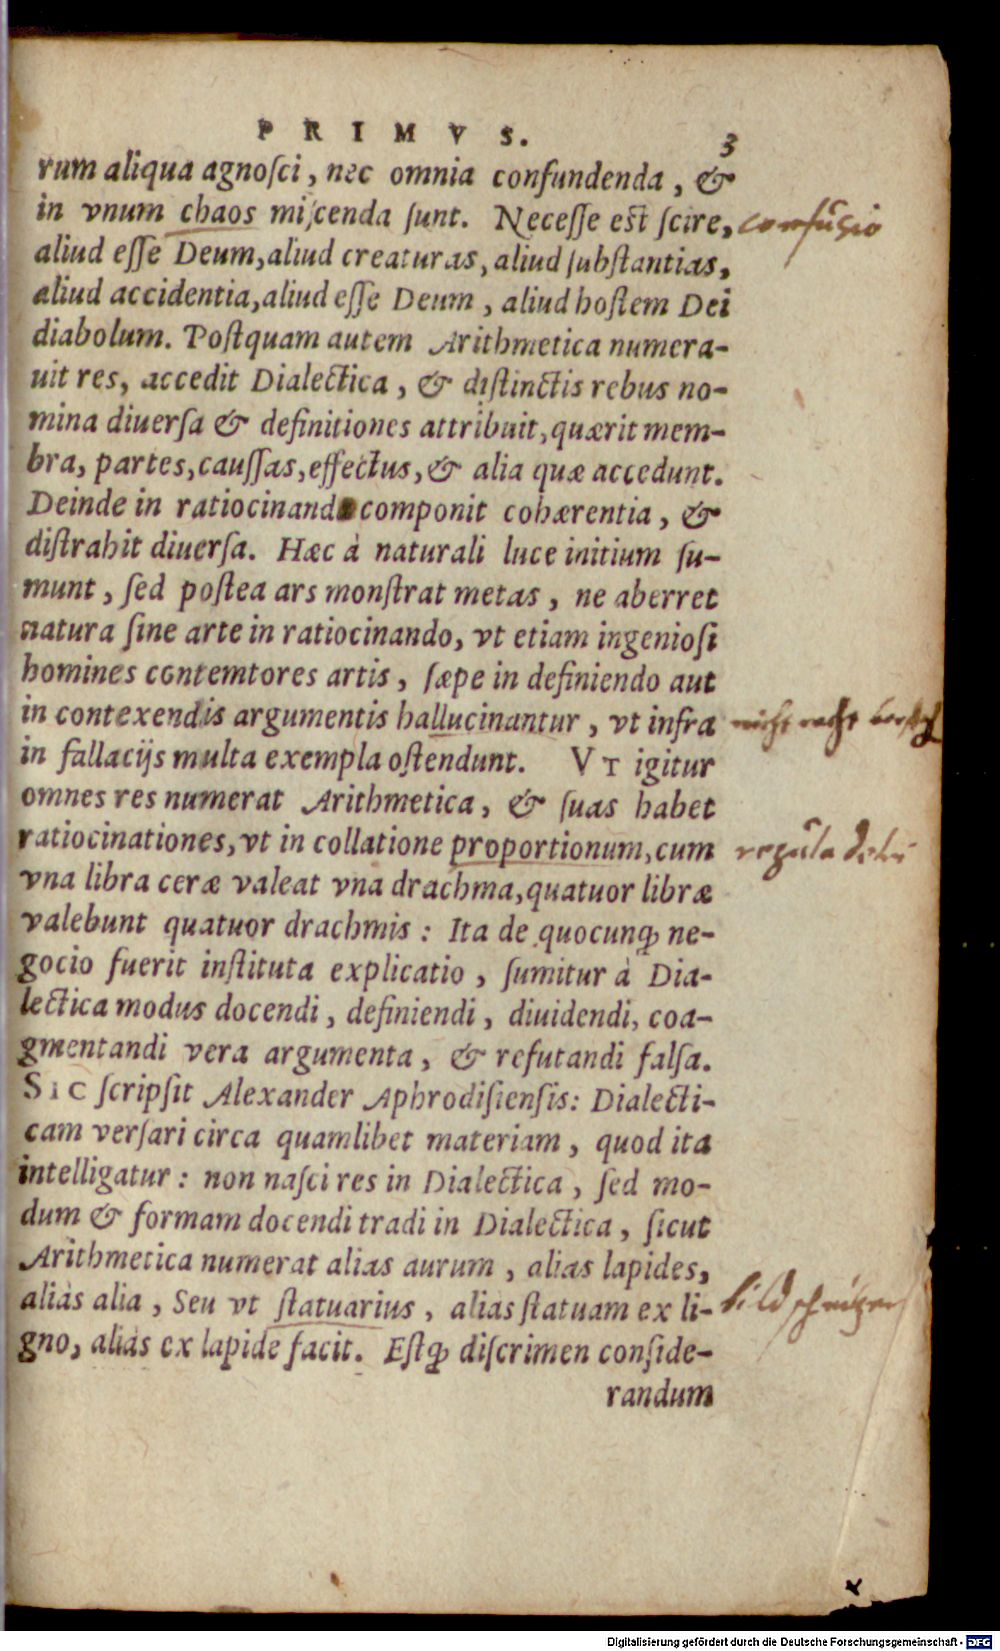 PRIMVS. 3
rum aliqua agnoſci, nec omnia confundenda, &
in vnum chaos miſcenda ſunt. Neceſſe est ſcire, confusio
aliud eſſe Deum, aliud creaturas, aliud ſubſtantias,
aliud accidentia, aliud eſſe Deum, aliud hoſtem Dei
diabolum. Poſtquam autem Arithmetica numera-
uit res, accedit Dialectica, & diſtinctis rebus no-
mina diuerſa & definitiones attribuit, quærit mem-
bra, partes, cauſſas, effectus, & alia quæ accedunt.
Deinde in ratiocinando componit cohærentia, &
diſtrahit diuerſa. Hæc à naturali luce initium ſu-
munt, ſed poſtea ars monſtrat metas, ne aberret
natura ſine arte in ratiocinando, vt etiam ingenioſi
homines contemtores artis, ſæpe in definiendo aut
in contexendis argumentis hallucinantur, vt infra nicht recht
in fallacijs multa exempla oſtendunt. VT igitur
omnes res numerat Arithmetica, & ſuas habet
ratiocinationes, vt in collatione proportionum, cum regula detri
vna libra ceræ valeat vna drachma, quatuor libræ
valebunt quatuor drachmis: Ita de quocunq; ne-
gocio fuerit inſtituta explicatio, ſumitur à Dia-
lectica modus docendi, definiendi, diuidendi, coa-
gmentandi vera argumenta, & refutandi falſa.
SIC ſcripſit Alexander Aphrodiſienſis: Dialecti-
cam verſari circa quamlibet materiam, quod ita
intelligatur: non naſci res in Dialectica, ſed mo-
dum & formam docendi tradi in Dialectica, ſicut
Arithmetica numerat alias aurum, alias lapides,
aliàs alia, Seu vt ſtatuarius, alias ſtatuam ex li- bildschnitzer
gno, aliàs ex lapide facit. Eſtq; diſcrimen conſide-
randum
Digitalisierung gefördert durch die Deutsche Forschungsgemeinschaft - DFG